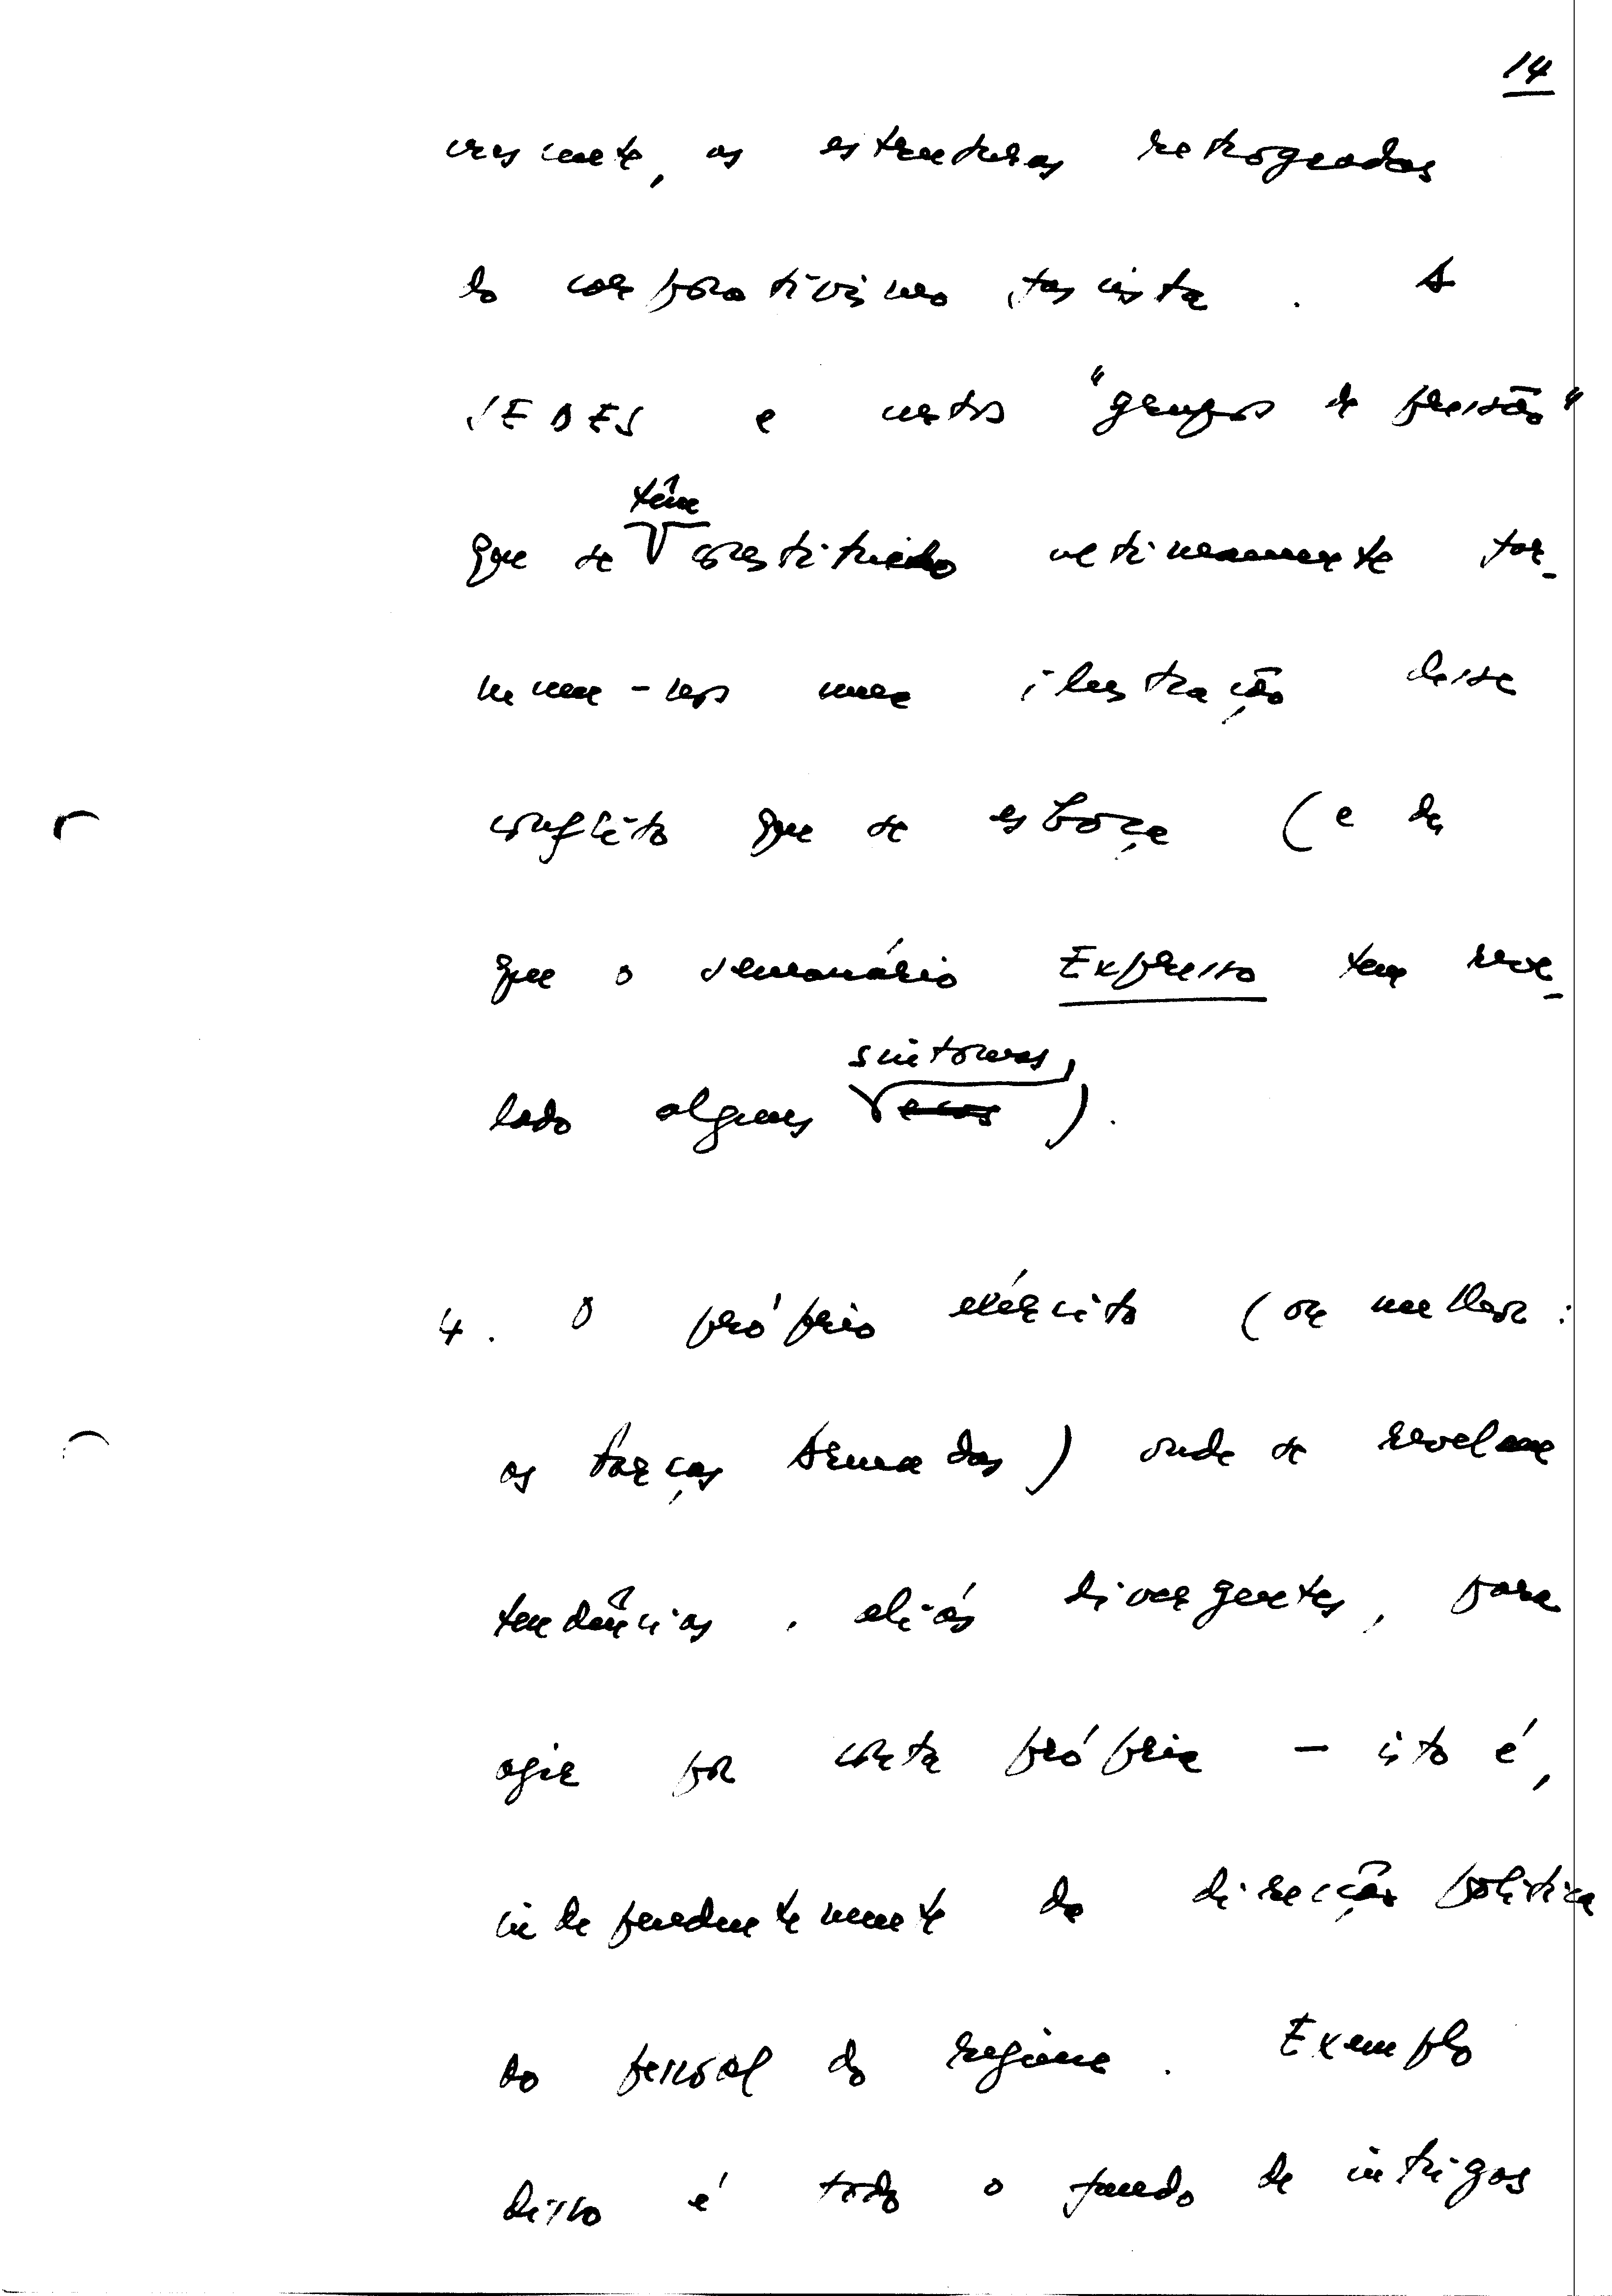 14
crescente, as estruturas retrogradas
do corporativismo fascista. A
SEDES e outros "grupos de pressão"
que se têm constituído ultimamente for-
necem-nos uma ilustração desse
conflito que se esboça (e de
que o semanário Expresso tem reve-
lado alguns sintomas, ecos).
4. O próprio exército (ou melhor:
as forças Armadas) onde se revelam
tendências, aliás divergentes, para
agir por conta própria — isto é,
independentemente da direcção política
do pessoal do regime. Exemplo
disso é todo o fundo de intrigas